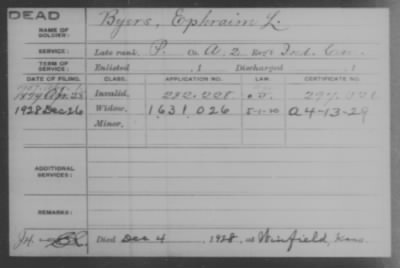 DEAD
NAME OF SOLDIER: Byers, Ephraim L.
SERVICE: Late rank, P. Co. A, 2 Reg't Ind. Cav.
TERM OF SERVICE: Enlisted , 1 Discharged , 1
DATE OF FILING. CLASS. APPLICATION NO. LAW. CERTIFICATE NO.
1879 Apr. 28 Invalid,
1928 Dec 26 Widow, 1631026 5-1-20 A4-13-29
Minor,
ADDITIONAL SERVICES:
REMARKS:
Died Dec 4, 1928, at Winfield, Kans.